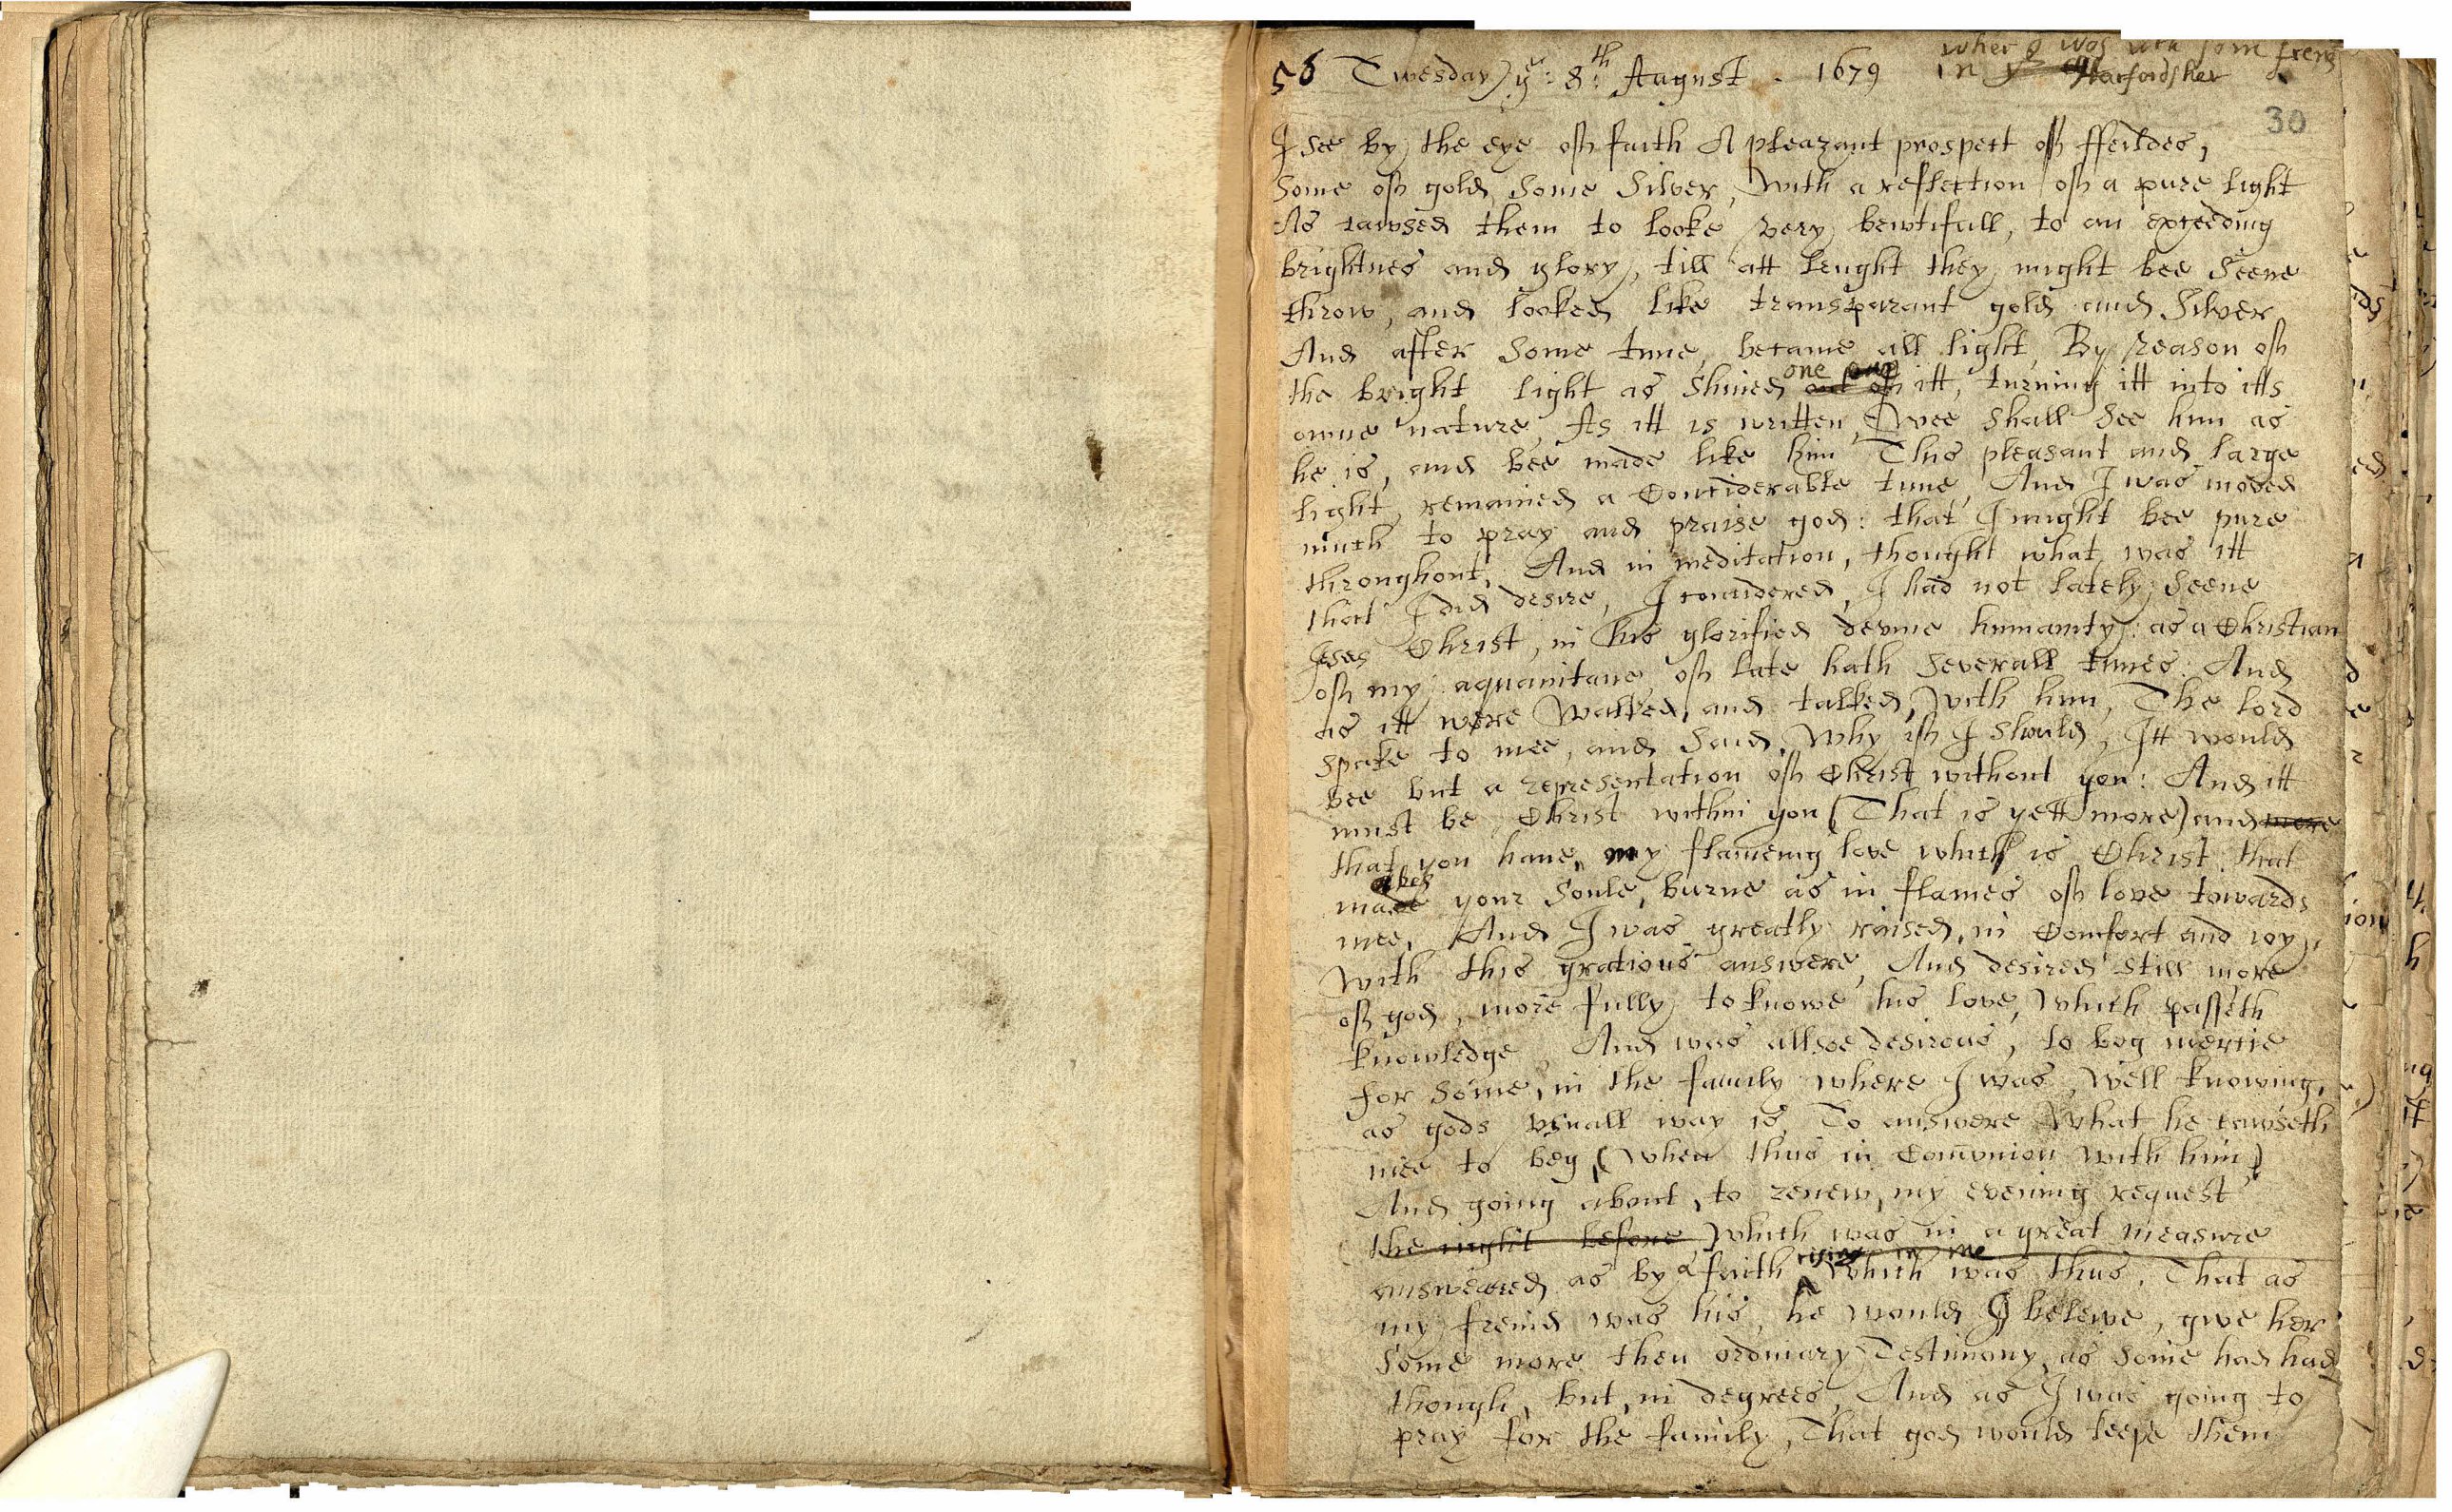 wher I was with som frens
56 Twesday ye: 8th: August . 1679 in Harfordsher
30
I see by the eye off faith A pleazant prospect off ffeildes,
Some off gold, Some Silver, With a reflection off a pure light
As cawsed them to looke very bewtifull, to an exceeding
brightnes and glory, till att lenght they might bee Seene
throw, and looked like transparant gold and Silver,
And after Some time, became all light, By reason off
one
the bright light as Shined out off itt, turning itt into itts
owne nature, As itt is written, wee Shall See him as
he is, and bee made like him This pleasant and large
light, remained a Considerable time, And I was moved
much to pray and praise god: that I might bee pure
throughout, And in meditation, thought what was itt
that I did desire, I considered, I had not lately Seene
Jeses Christ, in his glorified devine humanity: as a Christian
off my aquaintanc off late hath Severall times: And
as itt were Walked, and talked, with him, The lord
Spake to mee, and Said, Why iff I Should, Itt would
bee but a representation off Christ without you: And itt
must be Christ within you (That is yett more) and more
that you have, my flameing love which is Christ that
akes
made your Soule, burne as in flames off love towards
mee, And I was greatly raised, in Comfort and ioy,
With this gratious answere, And desired still more
off god, more fully to knowe his love, which passeth
knowledge, And was allsoe desirous, to beg mercie
for Some, in the family where I was, Well knowing,
as gods usuall way is, To answere What he cawseth
mee to beg, (When thus in Comunion with him)
And going about, to renew, my evening request
the night before Which was in a great measure
rising in me
answeared as by a faith Which was thus, That as
my freind was his, he would I beleive, give her
Some more then ordinary Testimony, as Some had had
though, but, in degrees, And as I was going to
pray for the family, That god would keepe them